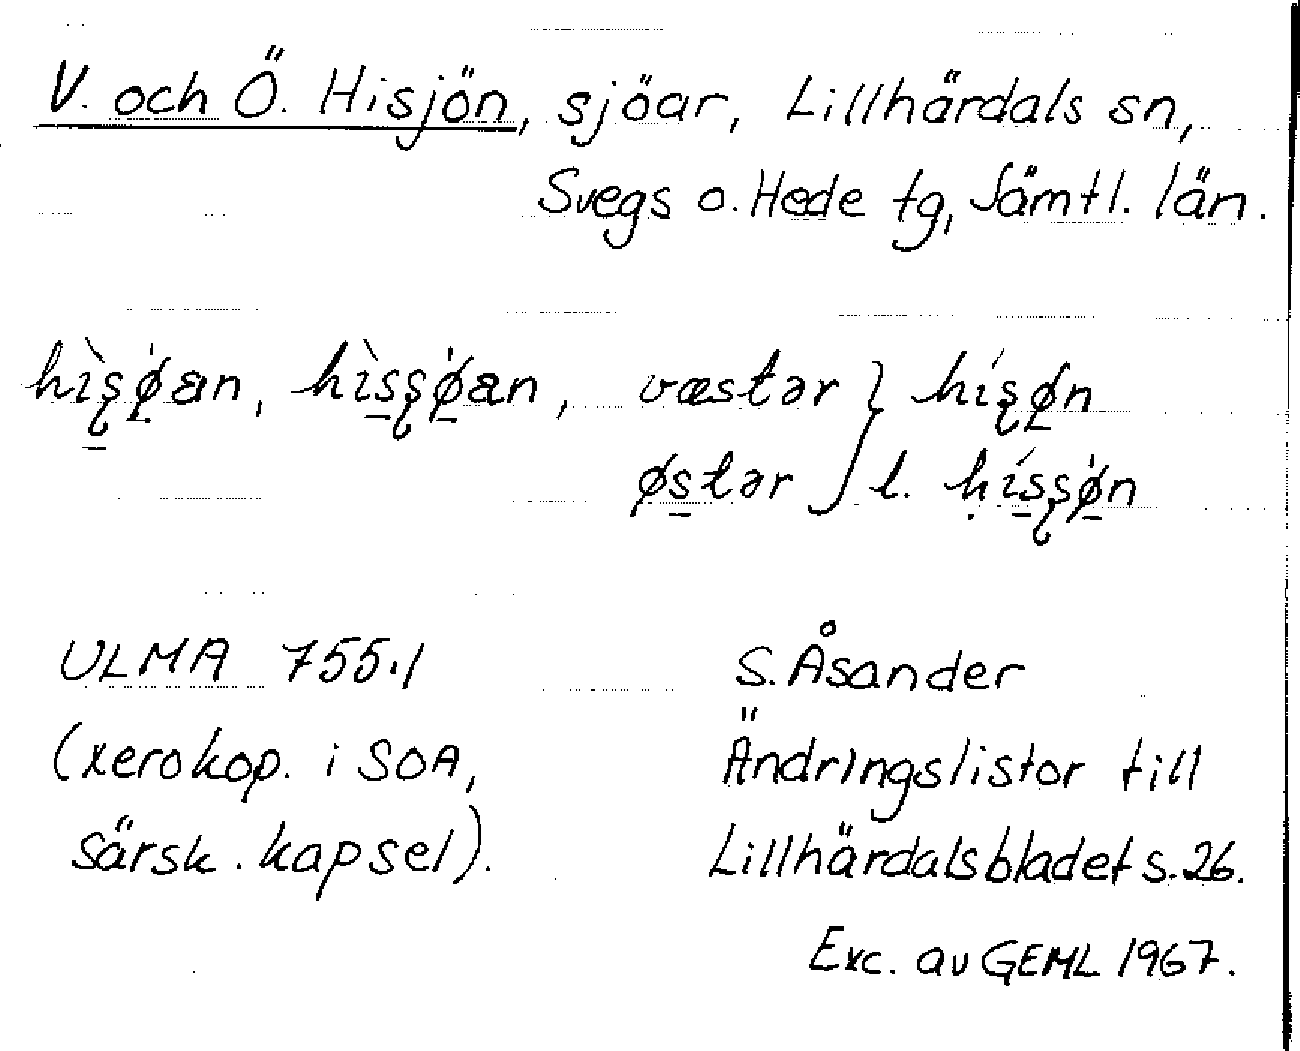 V. och Ö. Hisjön, sjöar, Lillhärdals sn,
Svegs o. Hede tg, Jämtl. län.
hìşø̍an, hìsşø̍an, væstər } híşøn
østər } l. hísşø̍n
ULMA 755:1
(xerokop. i SOA,
särsk. kapsel).
S. Åsander
Ändringslistor till
Lillhärdalsbladet s. 26.
Exc. av GEML 1967.